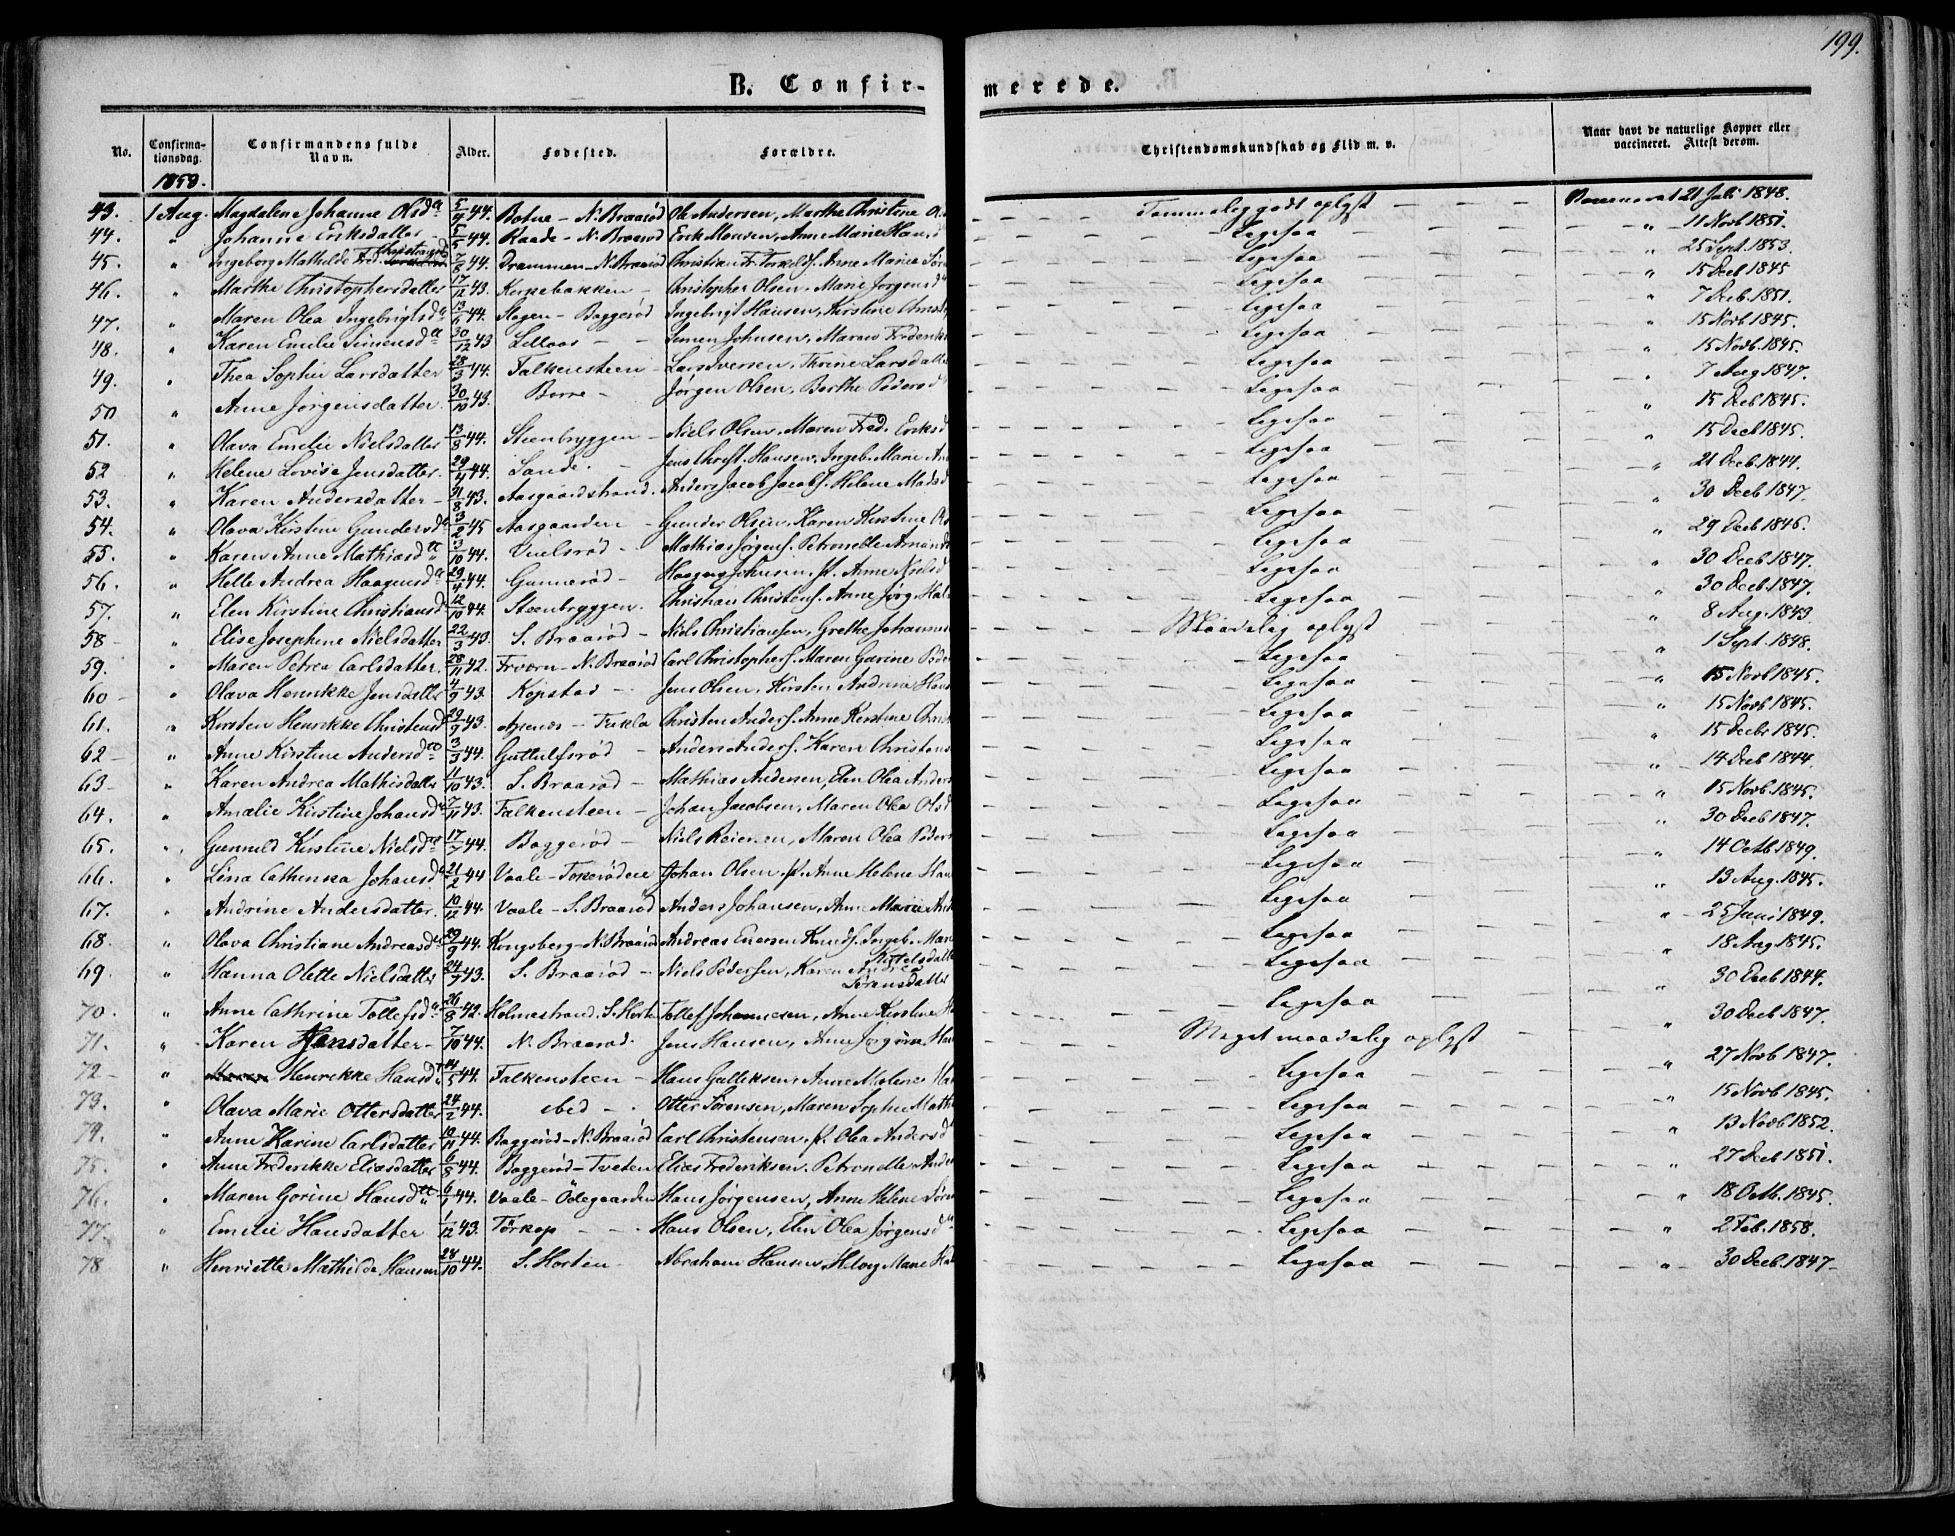 199.
B. Confirmerede.
No. | Confirmationsdag. | Confirmandens fulde Navn. | Alder. | Fødested. | Forældre. | Christendomskundskab og Flid m. v. | Naar havt de naturlige Kopper eller vaccineret. Attest derom.
1859.
43. 1 Aug. Magdalene Johanne Olsd. 5/4 44. Botne – N. Braarød Ole Andersen, Marthe Christine Temmelig godt oplyst 21 Juli 1848.
44. " Johanne Eriksdatter 5/5 44. Raade – N. Braarød Erik Anne Marie Hansd Ligesaa " 11 Novb 1851.
45. " Ingeborg Mathilde 7/8 44. Drammen – N. Braarød Christian Fr. Torkelds. Anne Marie Ligesaa " 25 Sept. 1853.
46. " Marthe Christophersdatter 17/12 43. Kirkebakken – Christopher Olsen, Marie Jørgensd Ligesaa " 15 Decb 1845
47. " Maren Olea Ingebrigtsd 13/6 44. Slagen – Baggerød Ingebrigt Hansen, Kirstine Ligesaa " 7 Decb. 1851.
48. " Karen Emilie Simensd 30/12 43 Lillaas – Simen Johnsen, Maren Frederiks Ligesaa " 15 Novb 1845.
49. " Thea Sophie Larsdatter 28/3 44. Falkensteen – Lars Iversen, Thrine Larsdatter Ligesaa " 15 Novb. 1845.
50 " Anne Jørgensdatter. 30/10 43. Borre – Jørgen Olsen, Berthe Pedersd Ligesaa " 7 Aug 1847.
51. " Olava Emelie Nielsdatter 13/8 44. Steenbryggen – Niels Olsen, Maren Fred. Eriksd Ligesaa " 15 Decb 1845.
52 " Helene Lovise Jensdatter 29/4 44. Sande. – Jens Christ. Hansen, Ingeb. Marie Ligesaa " 15 Decb 1845.
53. " Karen Andersdatter – 31/8 43. Aasgaardstrand. Anders Jacob Jacobs. Helene Madsd Ligesaa " 21 Decb. 1844.
54. " Olava Kirstine Gundersd 3/2 45 Aasgaarden – Gunder Olsen, Karen Kirstine Ols Ligesaa " 30 Decb 1847.
55. " Karen Anne Mathiasd 3/10 44. – Mathias Jørgens. Petronelle Ligesaa " 29 Decb 1846.
56. " Helle Andrea Haagensd 29/4 44. Gunnerød – Haagen Johnsen, Anne Nielsd Ligesaa " 30 Decb. 1847.
57. " Elen Kirstine Christiansd 12/10 44. Steenbryggen. Christian Christens. Anne Jørg. Ligesaa " 30 Decb. 1847.
58 – " Elise Josephine Nielsdatter 22/3 43. S. Braarød – Niels Christiansen, Grethe Johannes Maadelig oplyst " 8 Aug. 1843
59. " Maren Petrea Carlsdatter. 28/11 42. – N. Braarød Carl Christophers. Maren Gurine Peder Ligesaa " 1 Sept. 1848.
60 – " Olava Henrikke Jensdatter 4/9 43. Kopstad – Jens Olsen, Kirsten Andrea Hans Ligesaa " 15 Novb 1845.
61. " Kirsten Henrikke Christensd 29/9 43. Christen Anders. Anne Kirstine Christ Ligesaa " 15 Novb 1845.
62 – " Anne Kirstine Andersd 3/3 44. Guttulfsrød – Anders Anders. Karen Christens Ligesaa " 15 Decbr 1845.
63 – " Karen Andrea Mathisdatter 11/10 43. S. Braarød – Mathias Andersen, Elen Olea Anders Ligesaa " 14 Decb 1844.
64. " Amalie Kirstine Johansd 7/11 43. Falkensteen – Johan Jacobsen, Maren Olea Olsd Ligesaa " 15 Novb. 1845.
65. " Gunnild Kirstine Nielsd 17/7 44. Baggerød – Niels Reiersen, Maren Olea Peders Ligesaa " 30 Decb 1847.
66. " Lina Cathinka Johansd 21/2 44 Vaale – Johan Olsen Anne Helene Han Ligesaa " 14 Octb. 1849.
67. " Andrine Andersdatter. 10/12 44. Vaale – S. Braarød Anders Johansen, Anne Marie And Ligesaa " 13 Aug. 1845.
68. " Olava Christiane Andreasd 29/9 44. Kongsberg – N. Braarød Andreas Knuds. Ingeb. Marie Kittelsdatter Ligesaa " 25 Juni 1849.
69. " Hanna Olette Nielsdatter 24/7 43. S. Braarød – Niels Pedersen, Karen Andrea Sørensdatter Ligesaa " 18 Aug 1845.
70. " Anne Cathrine Tollefsd 26/8 42. Holmestrand, S. Horten Tollef Johannesen, Anne Kirstine Ligesaa " 30 Decb 1844.
71. " Karen Jensdatter – 7/10 44. N. Braarød. Jens Hansen, Anne Jørgine Hans Meget maadelig oplyst " 30 Decb 1847.
72 – " Henrikke Hansd 14/5 44. Falkensteen – Hans Gulliksen, Anne Malene Ligesaa " 27 Novb 1847.
73. " Olava Marie Ottersdatter 24/2 44. ibid – Otter Sørensen, Maren Sophie Math Ligesaa " 15 Novb 1845.
74. " Anne Karine Carlsdatter 10/11 44. Baggerød – N. Braarød Carl Christensen, Olea Andersd Ligesaa " 13 Novb 1852.
75. " Anne Frederikke Eliasdatter 6/8 44. Baggerød – Tveten Elias Frederiksen. Petronelle Ander Ligesaa " 27 Decb 1851.
76. " Maren Gorine Hansd 6/1 44. Vaale – Ødegaarden Hans Jørgensen, Anne Helene Sørn Ligesaa " 18 Octb. 1845.
77. " Emilie Hansdatter 1/12 43. Tørkop – Hans Olsen, Elen Olea Jørgensd Ligesaa " 2 Feb. 1858.
78 " Henriette Mathilde Hansen 28/10 44. S. Horten – Abraham Hansen, Marie Ligesaa " 30 Decb. 1847